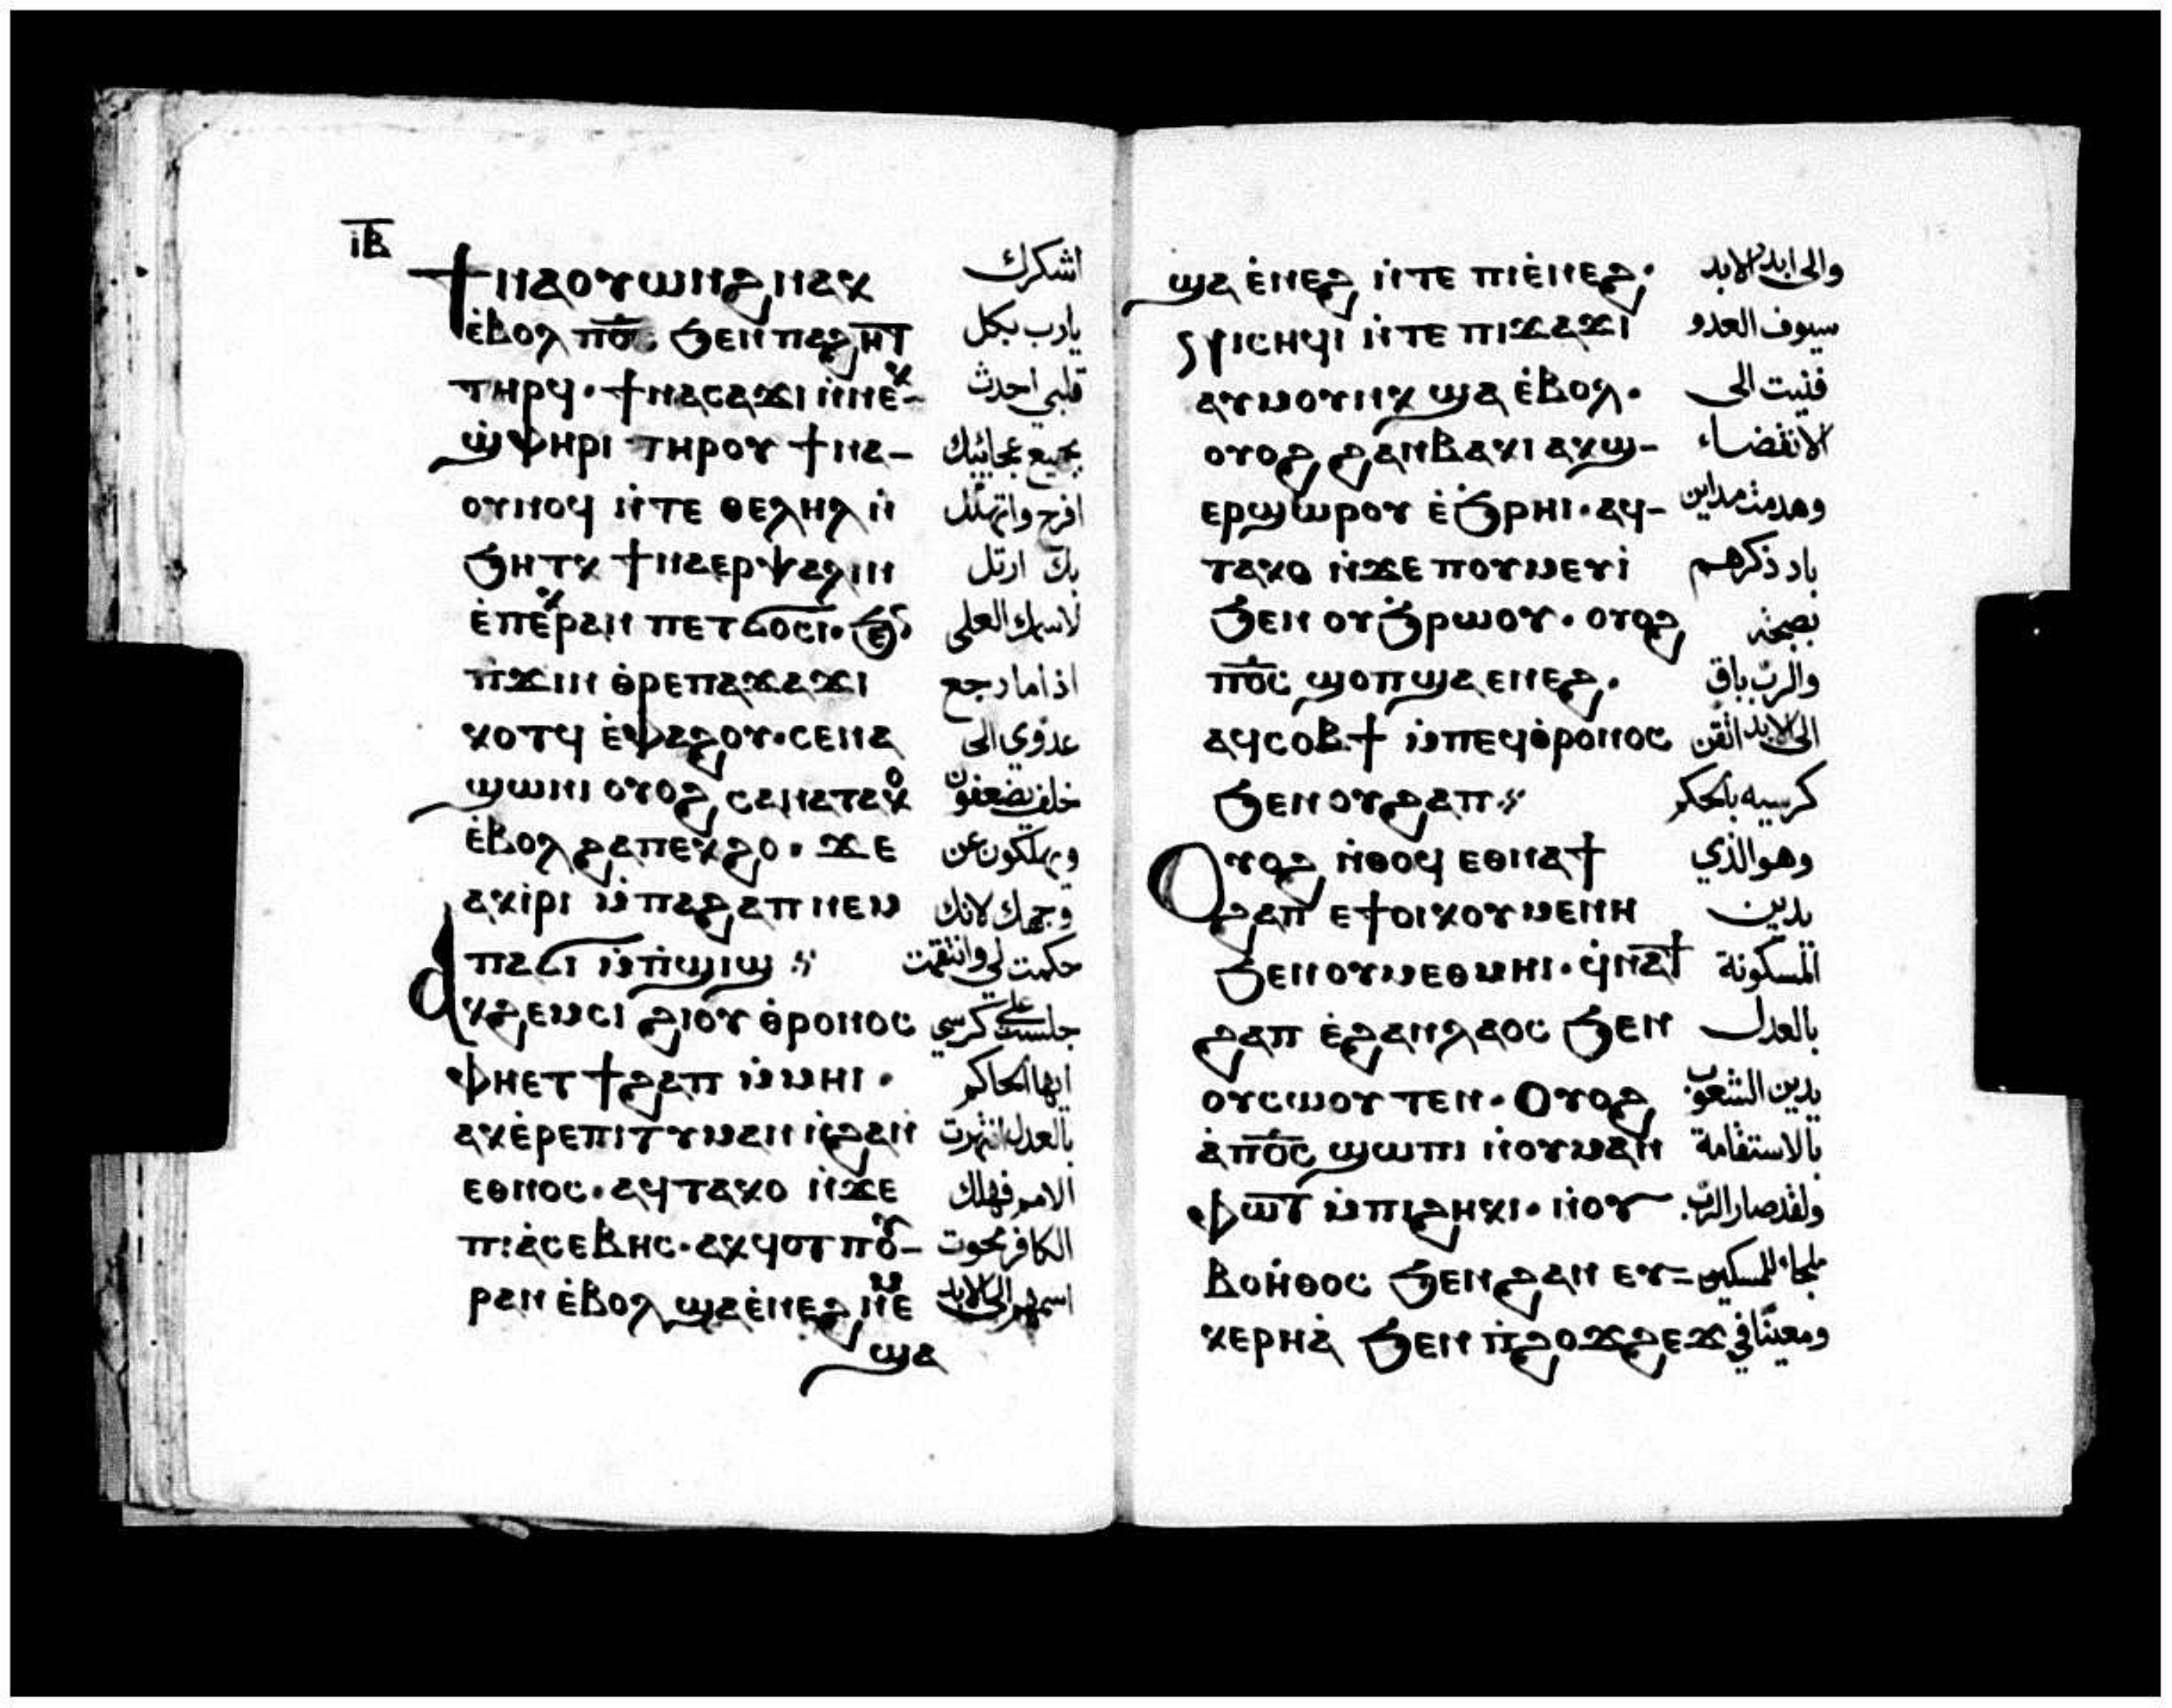 ⲓ̅ⲃ̅
ϯⲛⲁⲟⲩⲱⲛϩ ⲛⲁⲕ اشكرك
ⲉ̀ⲃⲟⲗ ⲡ̅ⲟ̅ⲥ̅ ϧⲉⲛ ⲡⲁϩⲏⲧ يارب بكل
ⲧⲏⲣϥ· ϯⲛⲁⲥⲁϫⲓ ⲛ̀ⲛⲉⲕ- قلبي احدث
ϣ̀ⲫⲏⲣⲓ ⲧⲏⲣⲟⲩ ϯⲛⲁ- بجميع عجائبك
ⲟⲩⲛⲟϥ ⲛ̀ⲧⲉ ⲑⲉⲗⲏⲗ ⲛ̀ افرح واتهلل
ϧⲏⲧⲕ ϯⲛⲁⲉⲣⲯⲁⲗⲓⲛ بك ارتل
ⲉ̀ⲡⲉⲕⲣⲁⲛ ⲡⲉⲧϭⲟⲥⲓ· ϧⲉⲛ لاسمك العلي
ⲡϫⲓⲛ ⲑ̀ⲣⲉⲡⲁϫⲁϫⲓ اذا ما رجع
ⲕⲟⲧϥ ⲉ̀ⲫⲁϩⲟⲩ· ⲥⲉⲛⲁ عدوي الى
ϣⲱⲛⲓ ⲟⲩⲟϩ ⲥⲁⲛⲁⲧⲁⲕⲟ خلف يضعفون
ⲉ̀ⲃⲟⲗ ϩⲁⲡⲉⲕϩⲟ· ϫⲉ ويهلكون عن
ⲁⲕⲓ̀ⲣⲓ ⲙ̀ⲡⲁϩⲁⲡ ⲛⲉⲙ وجهك لانك
ⲡⲁϭⲓ ⲙ̀ⲡ̀ϣⲓϣ ⳾ حكمت لي وانتقمت
Ⲁⲕϩⲉⲙⲥⲓ ϩⲓⲟⲩ ⲑ̀ⲣⲟⲛⲟⲥ جلست على كرسي
ⲫⲏⲉⲧϯϩⲁⲡ ⲙ̀ⲙⲏⲓ· ايها الحاكم
ⲁⲕⲉ̀ⲣⲉⲡⲓⲧⲩⲙⲁⲛ ⲛ̀ϩⲁⲛ بالعدل انتهرت
ⲉⲑⲛⲟⲥ· ⲁϥⲧⲁⲕⲟ ⲛ̀ϫⲉ الامم فهلك
ⲡⲓⲁ̀ⲥⲉⲃⲏⲥ· ⲁⲕϥⲟⲧ ⲡⲟⲩ- الكافر محوت
ⲣⲁⲛ ⲉ̀ⲃⲟⲗ ϣⲁⲉ̀ⲛⲉϩ ⲛⲉⲙ اسمهم الى الابد
ϣⲁ
ϣⲁ ⲉ̀ⲛⲉϩ ⲛ̀ⲧⲉ ⲡⲓⲉ̀ⲛⲉϩ· والى ابد الابد
ϩⲓⲥⲏϥⲓ ⲛ̀ⲧⲉ ⲡⲓϫⲁϫⲓ سيوف العدو
ⲁⲩⲙⲟⲩⲛⲕ ϣⲁ ⲉ̀ⲃⲟⲗ· فنيت الى
ⲟⲩⲟϩ ϩⲁⲛⲃⲁⲕⲓ ⲁⲕϣ- الانقضاء
ⲉⲣϣⲱⲣⲟⲩ ⲉ̀ϧⲣⲏⲓ· ⲁϥ- وهدمت مداين
ⲧⲁⲕⲟ ⲛ̀ϫⲉ ⲡⲟⲩⲙⲉⲩⲓ̀ باد ذكرهم
ϧⲉⲛ ⲟⲩϧⲣⲱⲟⲩ· ⲟⲩⲟϩ بضجة
ⲡ̅ⲟ̅ⲥ̅ ϣⲟⲡ ϣⲁ ⲉⲛⲉϩ· والرب باق
ⲁϥⲥⲟⲃϯ ⲙ̀ⲡⲉϥⲑ̀ⲣⲟⲛⲟⲥ الى الابد اتقن
ϧⲉⲛ ⲟⲩϩⲁⲡ ⳾ كرسيه بالحكم
Ⲟⲩⲟϩ ⲛ̀ⲑⲟϥ ⲉⲑⲛⲁϯ وهو الذي
ϩⲁⲡ ⲉϯⲟⲓⲕⲟⲩⲙⲉⲛⲏ يدين
ϧⲉⲛ ⲟⲩⲙⲉⲑⲙⲏⲓ· ϥⲛⲁϯ المسكونة
ϩⲁⲡ ⲉ̀ϩⲁⲛⲗⲁⲟⲥ ϧⲉⲛ بالعدل
ⲟⲩⲥⲱⲟⲩⲧⲉⲛ· Ⲟⲩⲟϩ يدين الشعوب
ⲁ̀ⲡ̅ⲟ̅ⲥ̅ ϣⲱⲡⲓ ⲛ̀ⲟⲩⲙⲁⲛ بالاستقامة
ⲫⲱⲧ ⲙ̀ⲡⲓϩⲏⲕⲓ· ⲛ̀ⲟⲩ ولقد صار الرب
ⲃⲟⲏ̀ⲑⲟⲥ ϧⲉⲛ ϩⲁⲛ ⲉⲩ= ملجاء للمسكين
ⲕⲉⲣⲏⲁ̀ ϧⲉⲛ ⲡ̀ϩⲟϫϩⲉϫ ومعينا في